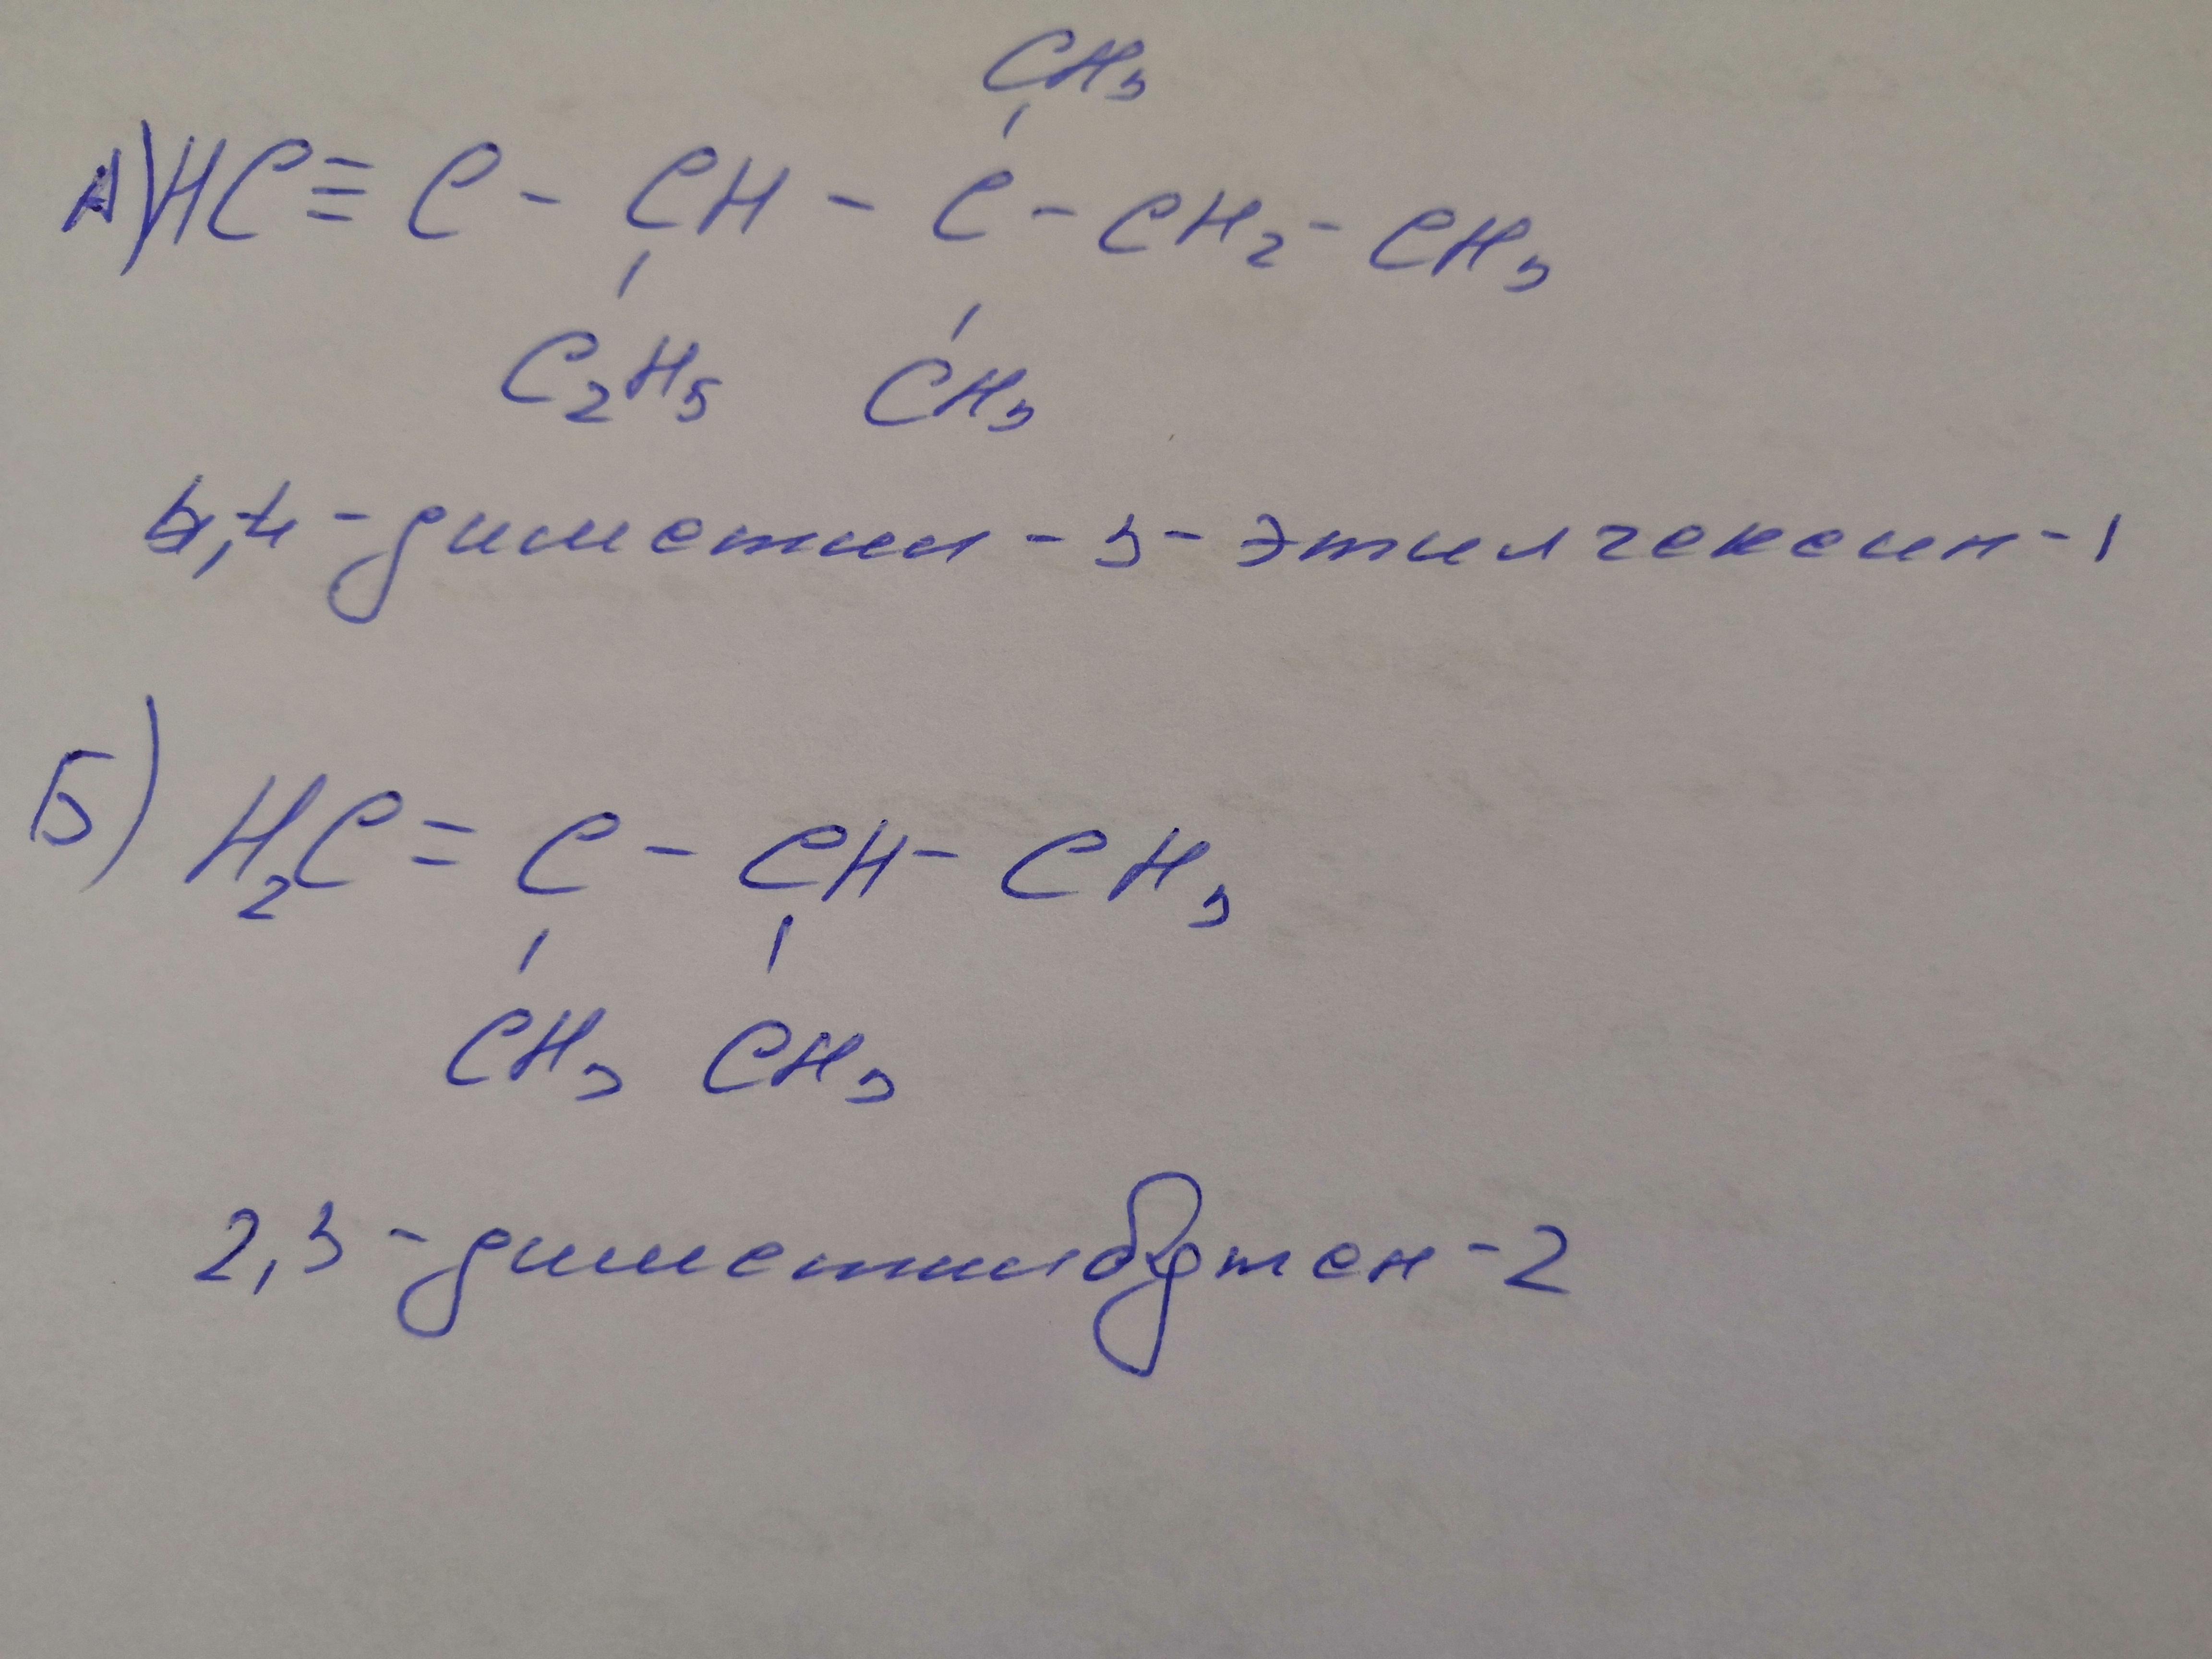 CH₃
А) HC ≡ C - CH - C - CH₂ - CH₃
C₂H₅ CH₃
4,4-диметил-3-этилгексин-1
Б) H₂C = C - CH - CH₃
CH₃ CH₃
2,3-диметилбутен-2